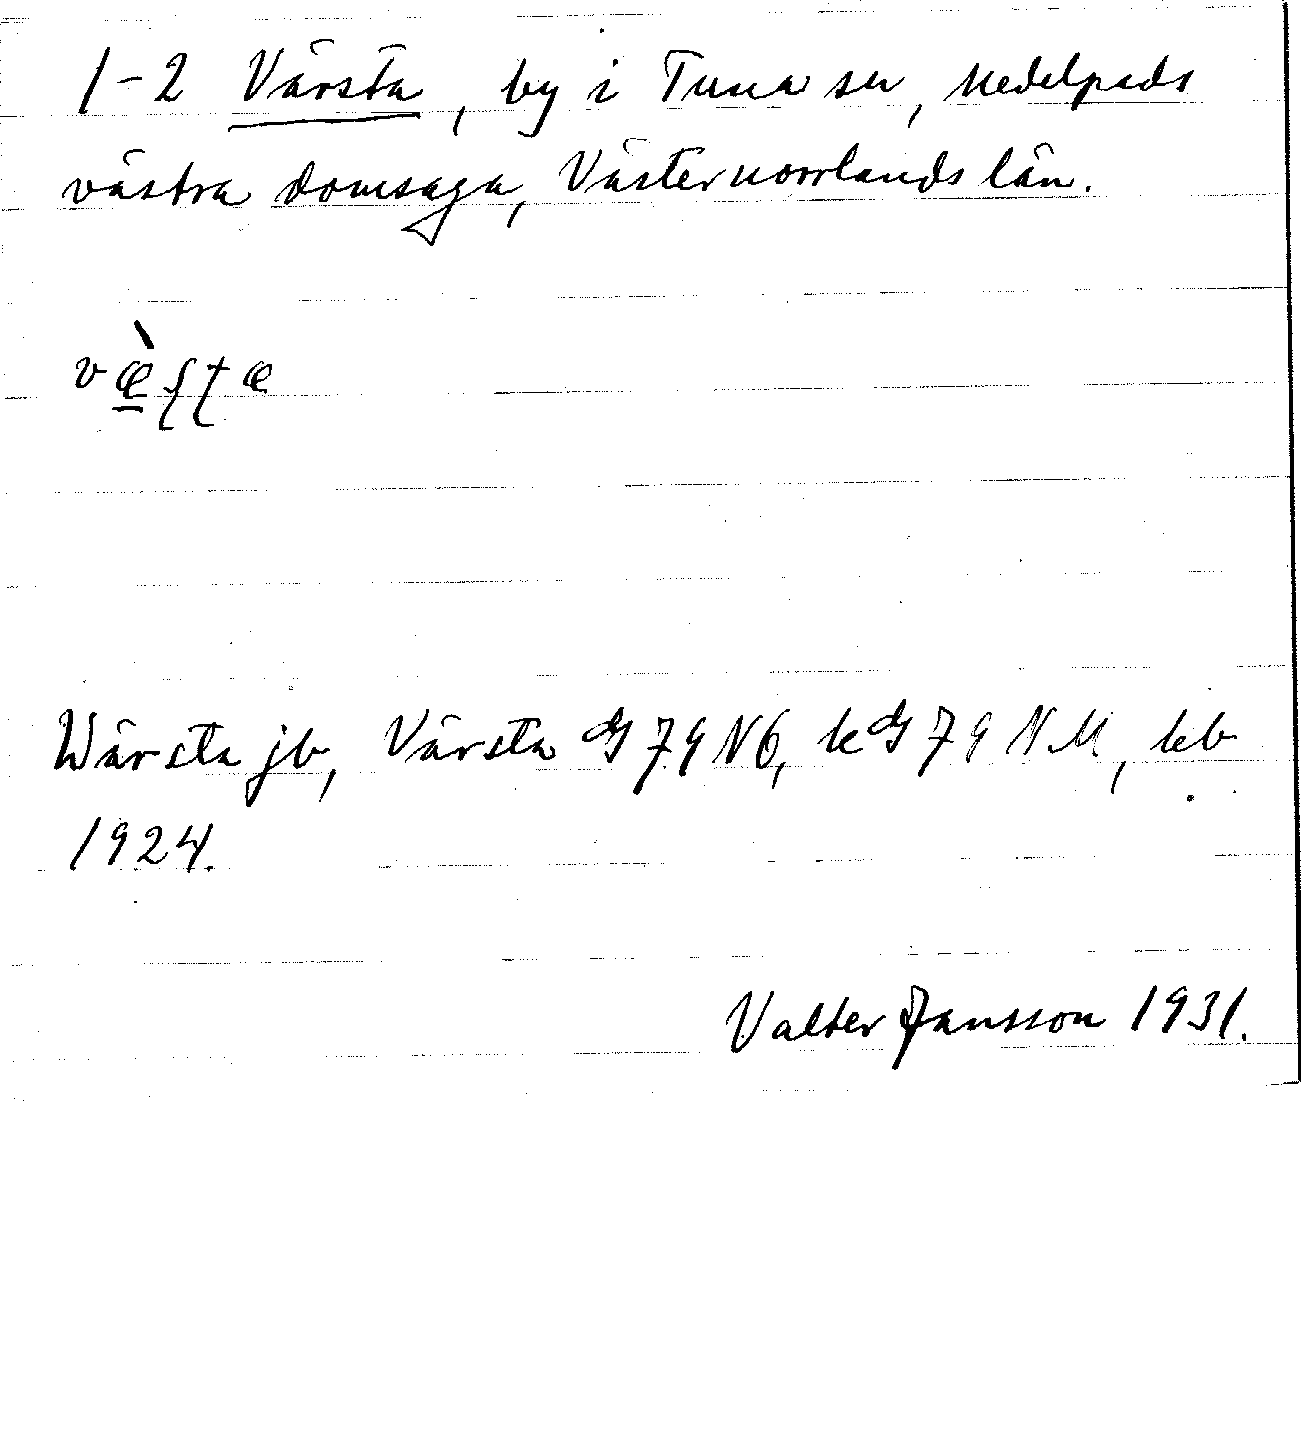 1-2 Värsta, by i Tuna sn, Medelpads
västra domsaga, Västernorrlands län.
væ̀ʂʈæ
Wärsta jb, Värsta G 79 NO, kG 79 NM, kb
1924.
Valter Jansson 1931.